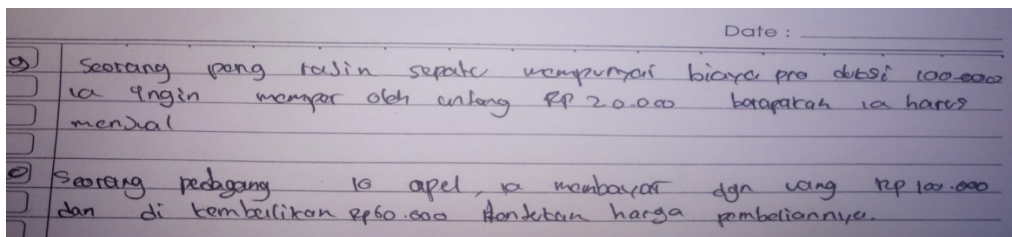 Date :
9) Seorang peng rajin sepatu mempunyai biaya pro duksi 100.000
ia ingin memper oleh untung RP 20.000 barapakah ia harus
menjual
Seorang pedagang 10 apel, ia membayar dgn uang Rp 100.000
dan di kembalikan Rp60.000 tentukan harga pembeliannya.